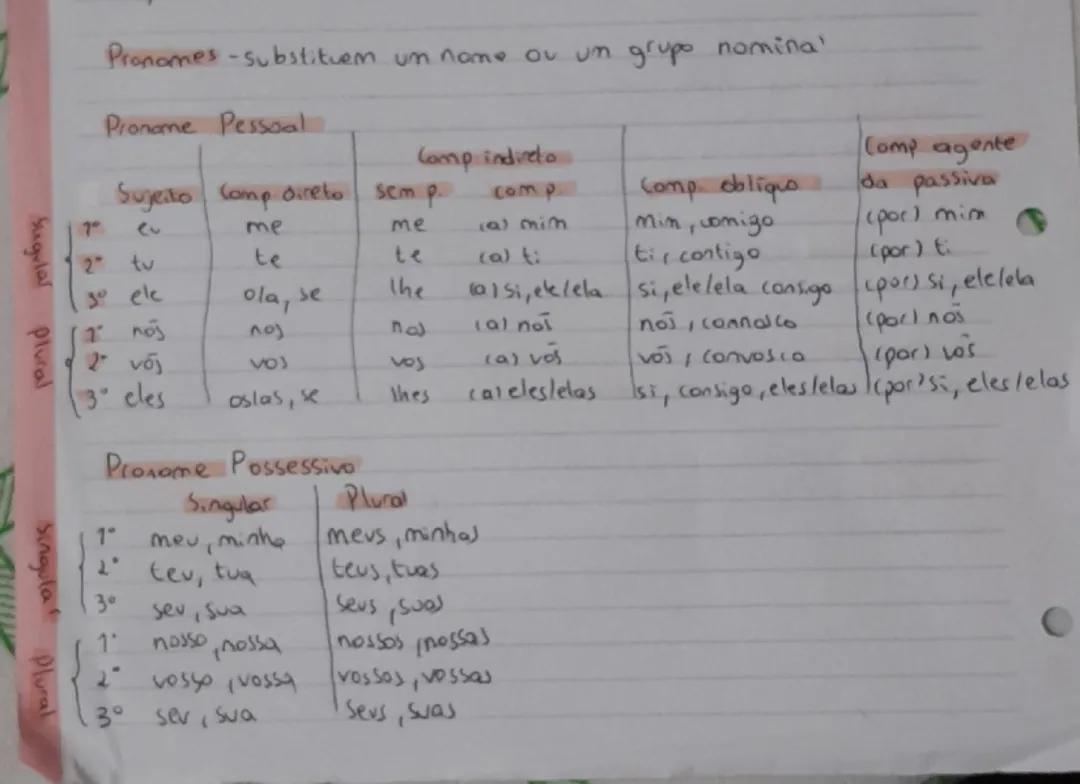 Pronomes - substituem um nome ou um grupo nominal
Pronome Pessoal
Comp. indireto Comp agente
Sujeito Comp direto sem p. com p. Comp. oblíquo da passiva
singular
1º eu me me (a) mim mim, comigo (por) mim
2º tu te te (a) ti ti, contigo (por) ti
3º ele o/a, se lhe (a) si, ele/ela si, ele/ela consigo (por) si, ele/ela
plural
1º nós nos nos (a) nós nós, connosco (por) nós
2º vós vos vos (a) vós vós, convosco (por) vós
3º eles os/as, se lhes (a) eles/elas si, consigo, eles/elas (por) si, eles/elas
Pronome Possessivo
Singular Plural
singular
1º meu, minha meus, minhas
2º teu, tua teus, tuas
3º seu, sua seus, suas
plural
1º nosso, nossa nossos, nossas
2º vosso, vossa vossos, vossas
3º seu, sua seus, suas